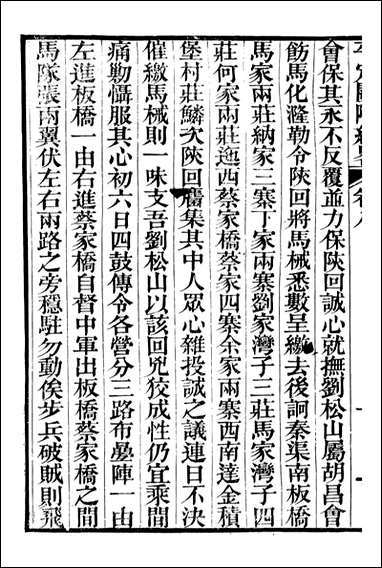 會保其永不反覆並力保陜回誠心就撫劉松山屬胡昌會
飭馬化漋勒令陜回將馬械悉數呈繳去後訶秦渠南板橋
馬家兩莊納家三寨丁家兩寨劉家灣子三莊馬家灣子四
莊何家兩莊迤西蔡家橋蔡家四寨余家兩寨西南達金積
堡村莊鱗次陜回麕集其中人眾心雜投誠之議連日不決
催繳馬械則一味支吾劉松山以該回兇狡成性仍宜乘間
痛勦懾服其心初六日四鼓傳令各營分三路布壘陣一由
左進板橋一由右進蔡家橋自督中軍出板橋蔡家橋之間
馬隊張兩翼伏左右兩路之旁穩駐勿動俟步兵破賊則飛